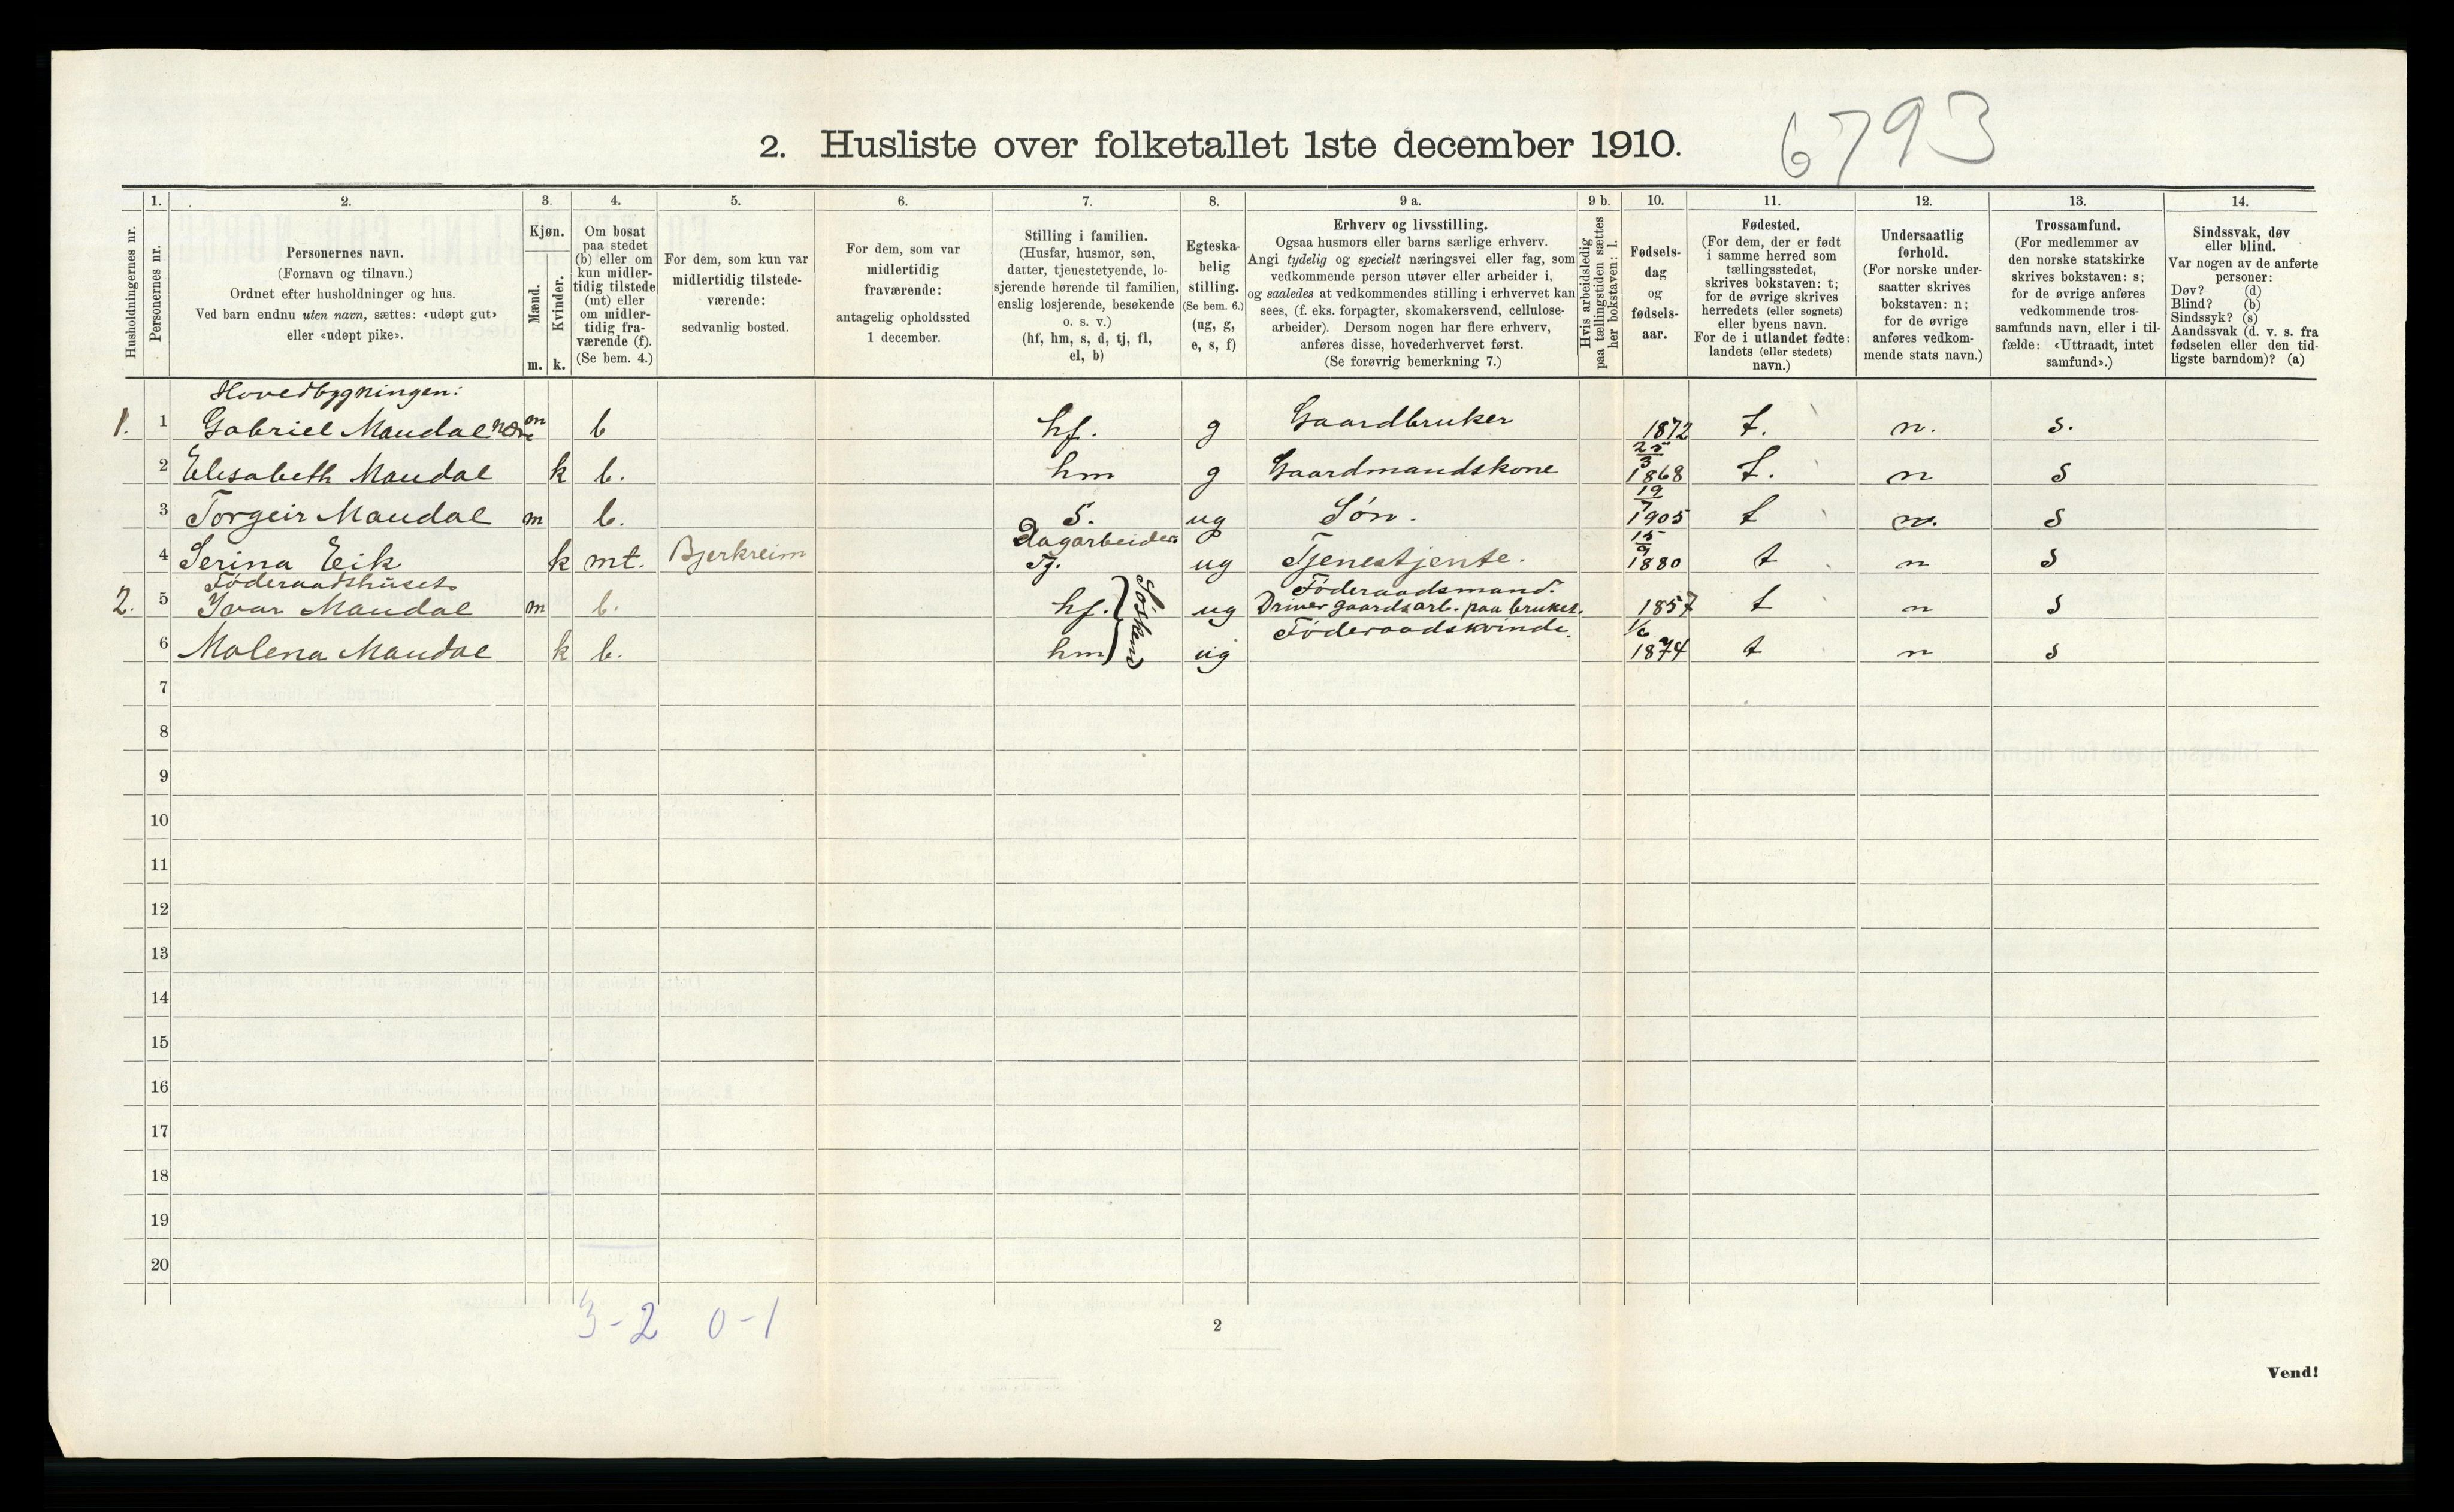 6793
2. Husliste over folketallet 1ste december 1910.
Husholdningernes nr.
1. Personernes nr.
2. Personernes navn.
(Fornavn og tilnavn.)
Ordnet efter husholdninger og hus.
Ved barn endnu uten navn, sættes: «udøpt gut»
eller «udøpt pike».
3. Kjøn.
Mænd. m.
Kvinder. k.
4. Om bosat
paa stedet
(b) eller om
kun midler-
tidig tilstede
(mt) eller
om midler-
tidig fra-
værende (f).
(Se bem. 4.)
5. For dem, som kun var
midlertidig tilstede-
værende:
sedvanlig bosted.
6. For dem, som var
midlertidig
fraværende:
antagelig opholdssted
1 december.
7. Stilling i familien.
(Husfar, husmor, søn,
datter, tjenestetyende, lo-
sjerende hørende til familien,
enslig losjerende, besøkende
o. s. v.)
(hf, hm, s, d, tj, fl,
el, b)
8. Egteska-
belig
stilling.
(Se bem. 6.)
(ug, g,
e, s, f)
9 a. Erhverv og livsstilling.
Ogsaa husmors eller barns særlige erhverv.
Angi tydelig og specielt næringsvei eller fag, som
vedkommende person utøver eller arbeider i,
og saaledes at vedkommendes stilling i erhvervet kan
sees, (f. eks. forpagter, skomakersvend, cellulose-
arbeider). Dersom nogen har flere erhverv,
anføres disse, hovederhvervet først.
(Se forøvrig bemerkning 7.)
9 b. Hvis arbeidsledig
paa tællingstiden sættes
her bokstaven: l.
10. Fødsels-
dag
og
fødsels-
aar.
11. Fødested.
(For dem, der er født
i samme herred som
tællingsstedet,
skrives bokstaven: t;
for de øvrige skrives
herredets (eller sognets)
eller byens navn.
For de i utlandet fødte:
landets (eller stedets)
navn.)
12. Undersaatlig
forhold.
(For norske under-
saatter skrives
bokstaven: n;
for de øvrige
anføres vedkom-
mende stats navn.)
13. Trossamfund.
(For medlemmer av
den norske statskirke
skrives bokstaven: s;
for de øvrige anføres
vedkommende tros-
samfunds navn, eller i til-
fælde: «Uttraadt, intet
samfund».)
14. Sindssvak, døv
eller blind.
Var nogen av de anførte
personer:
Døv? (d)
Blind? (b)
Sindssyk? (s)
Aandssvak (d. v. s. fra
fødselen eller den tid-
ligste barndom)? (a)
Hovedbygningen:
1. 1 Gabriel Maudal nedre m b hf. g Gaardbruker 1872 t. n. s.
2 Elisabeth Maudal k b. hm g Gaardmandskone 25/3 1868 t. n s
3 Torgeir Maudal m b. S. ug Søn. 19/7 1905 t n. s
Dagarbeider
4 Serina Eik k mt. Bjerkreim Tj. ug Tjenestjente. 15/9 1880 t n s
Föderaadshuset Föderaadsmand.
2. 5 Ivar Maudal m b. hf. Söskend ug Driver gaardsarb. paa bruket. 1857 t n s
Föderaadskvinde.
6 Malena Maudal k b. hm ug 1/6 1874 t n s
7
8
9
10
11
12
13
14
15
16
17
18
19
20
3-2 0-1
2
Vend!